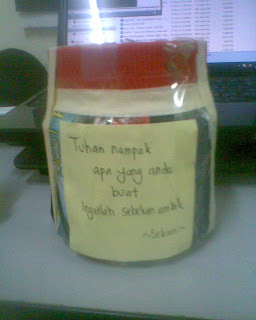 Tuhan nampak
apa yang anda
buat
Ingatlah sebelum ambik
~Sekian~